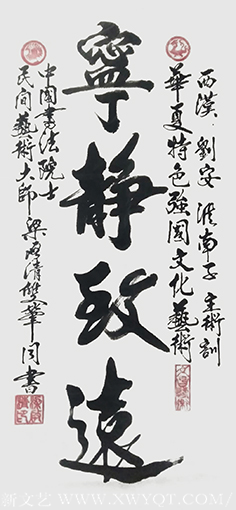 西漢·劉安 淮南子 主術訓
華夏特色強國文化藝術
寧靜致遠
中國書法院士
民間藝術大師梁啟清雙筆同書
新文艺 WWW.XWYQT.COM